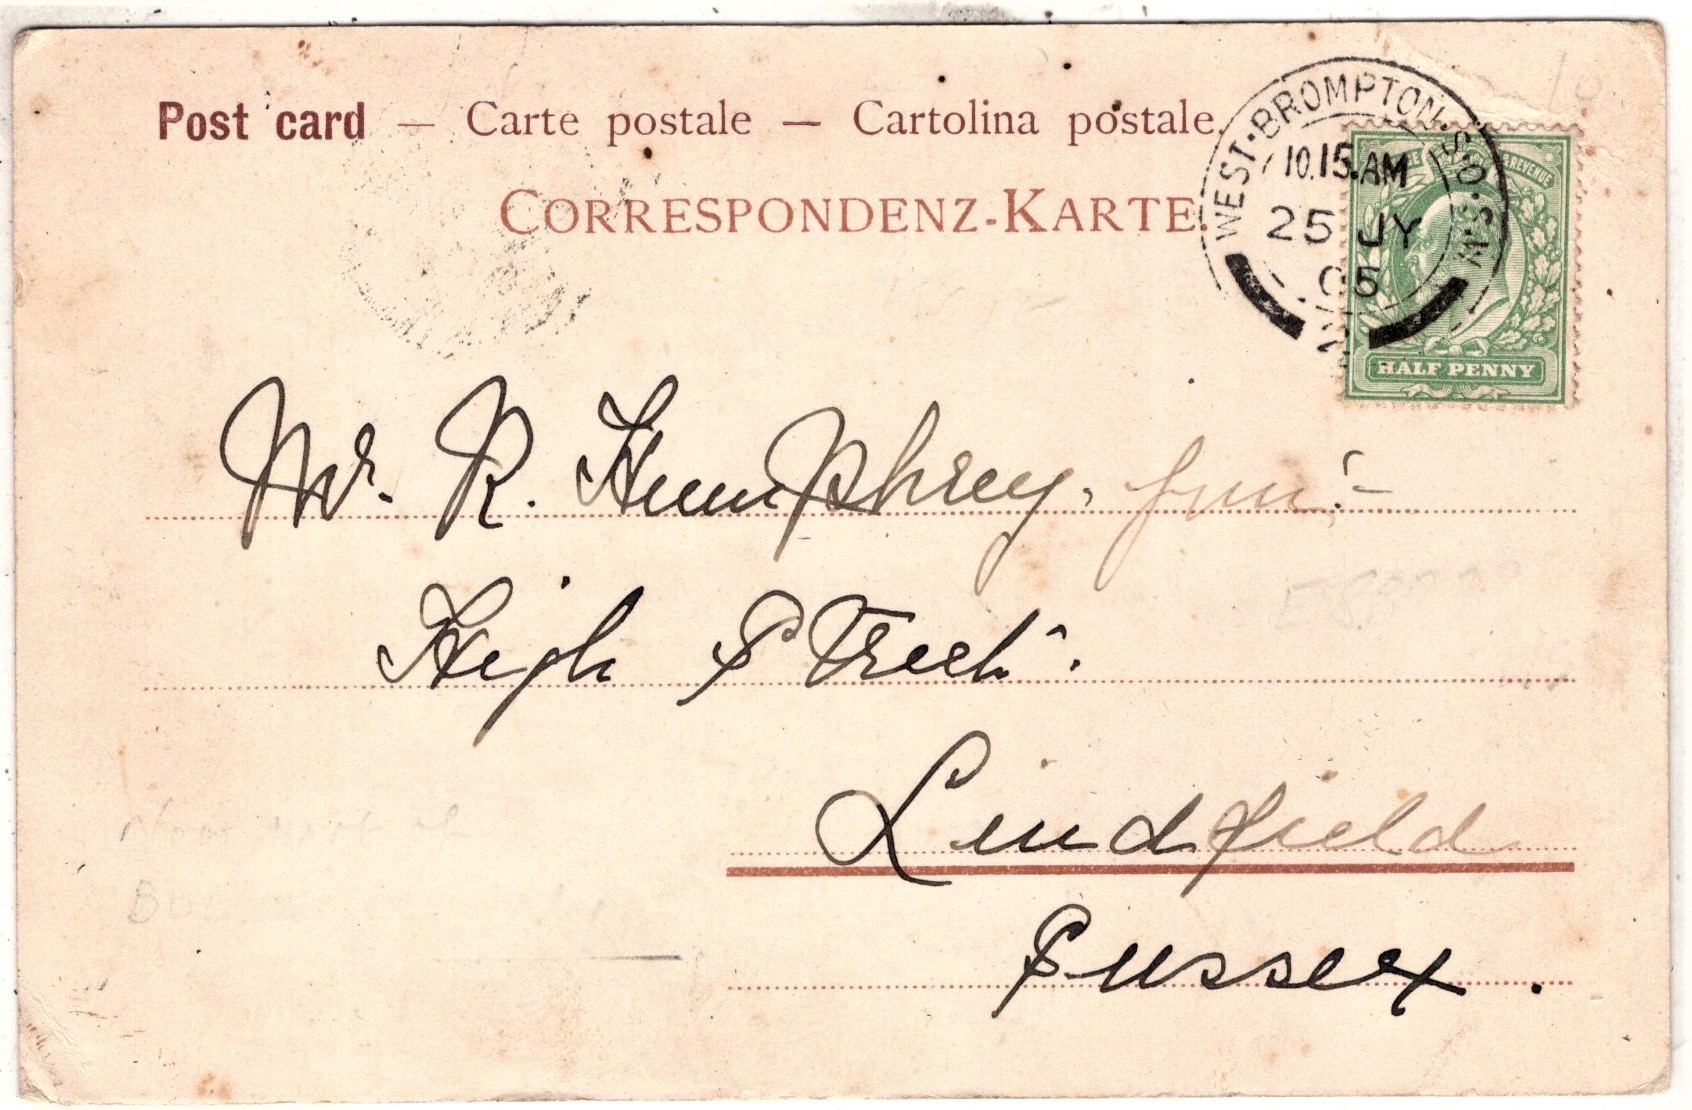 Post card — Carte postale — Cartolina postale.
CORRESPONDENZ-KARTE.
WEST·BROMPTON·S·O·M·S·W
10.15.AM
25 JY
05
REVENUE
HALF PENNY
Mr. R. Humphrey, Jun:-
High Street.
Lindfield
Sussex.